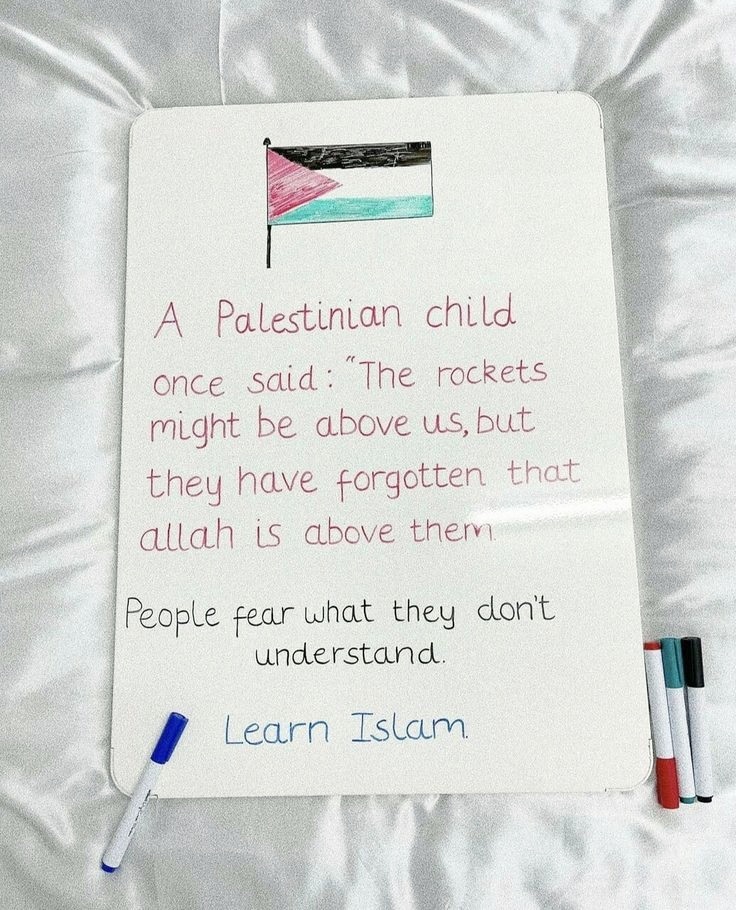 A Palestinian child
once said: "The rockets
might be above us, but
they have forgotten that
allah is above them.
People fear what they don't
understand.
Learn Islam.